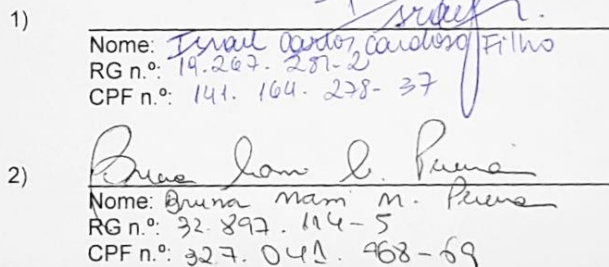 1)
Nome: Israel Carlos Cardoso Filho
RG n.º: 19.267.281-2
CPF n.º: 141.164.278-37
2)
Nome: Bruna Mani M. Pereira
RG n.º: 32.897.114-5
CPF n.º: 327.041.968-69